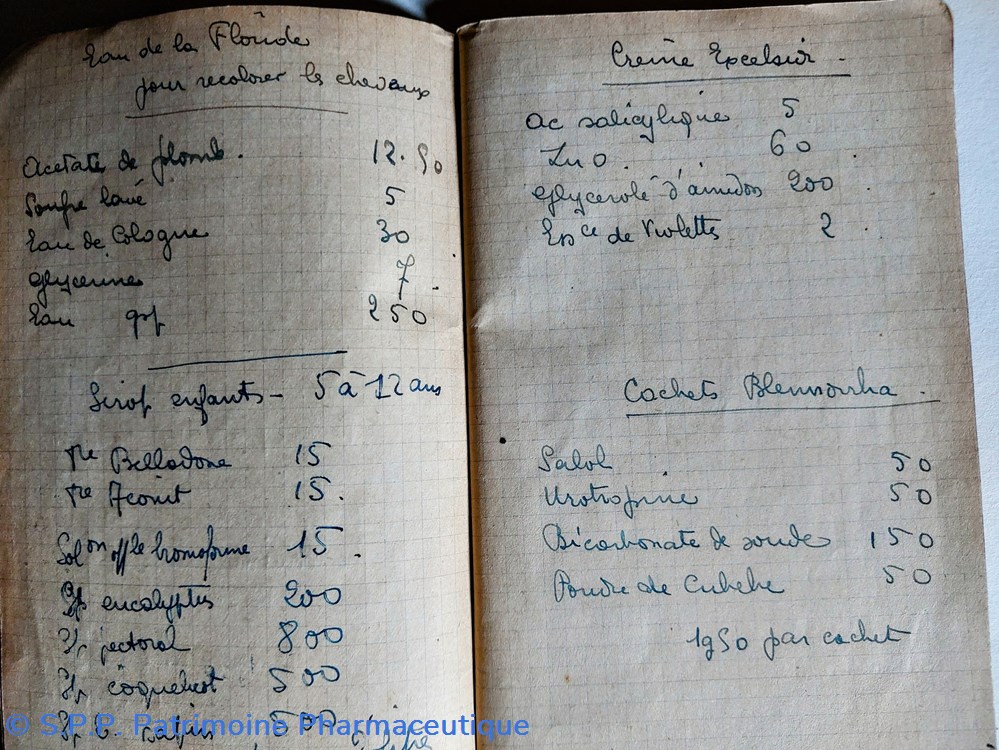 Eau de la Floride
pour recolorer les cheveux
Acetate de plomb. 12.50
Soufre lavé 5
Eau de Cologne 30
glycerine 7.
Eau qsp 250
Sirop enfants - 5 à 12 ans
Tre Belladone 15
Tre Aconit 15.
Solon offle bromoforme 15.
Sp eucalyptus 200
Sp pectoral 800
Sp coquelicot 500
Sp b. 500
Crème Excelsior.
Ac salicylique 5
ZnO. 60
Glycerolé d'amidon 200.
Essce de Violettes 2.
Cachets Blennorrha.
Salol 50
Urotropine 50
Bicarbonate de soude 150
Poudre de Cubebe 50
1g50 par cachet
© S.P.P. Patrimoine Pharmaceutique